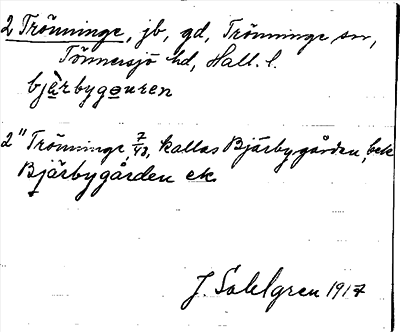 2 Trönninge, jb, gd, Trönninge sn,
Tönnersjö hd, Hall. l.
bjä̀rbygɑuren
2" Trönninge 7/48, kallas Bjärbygården, bek
Bjärbygården ek
J. Sahlgren 1917